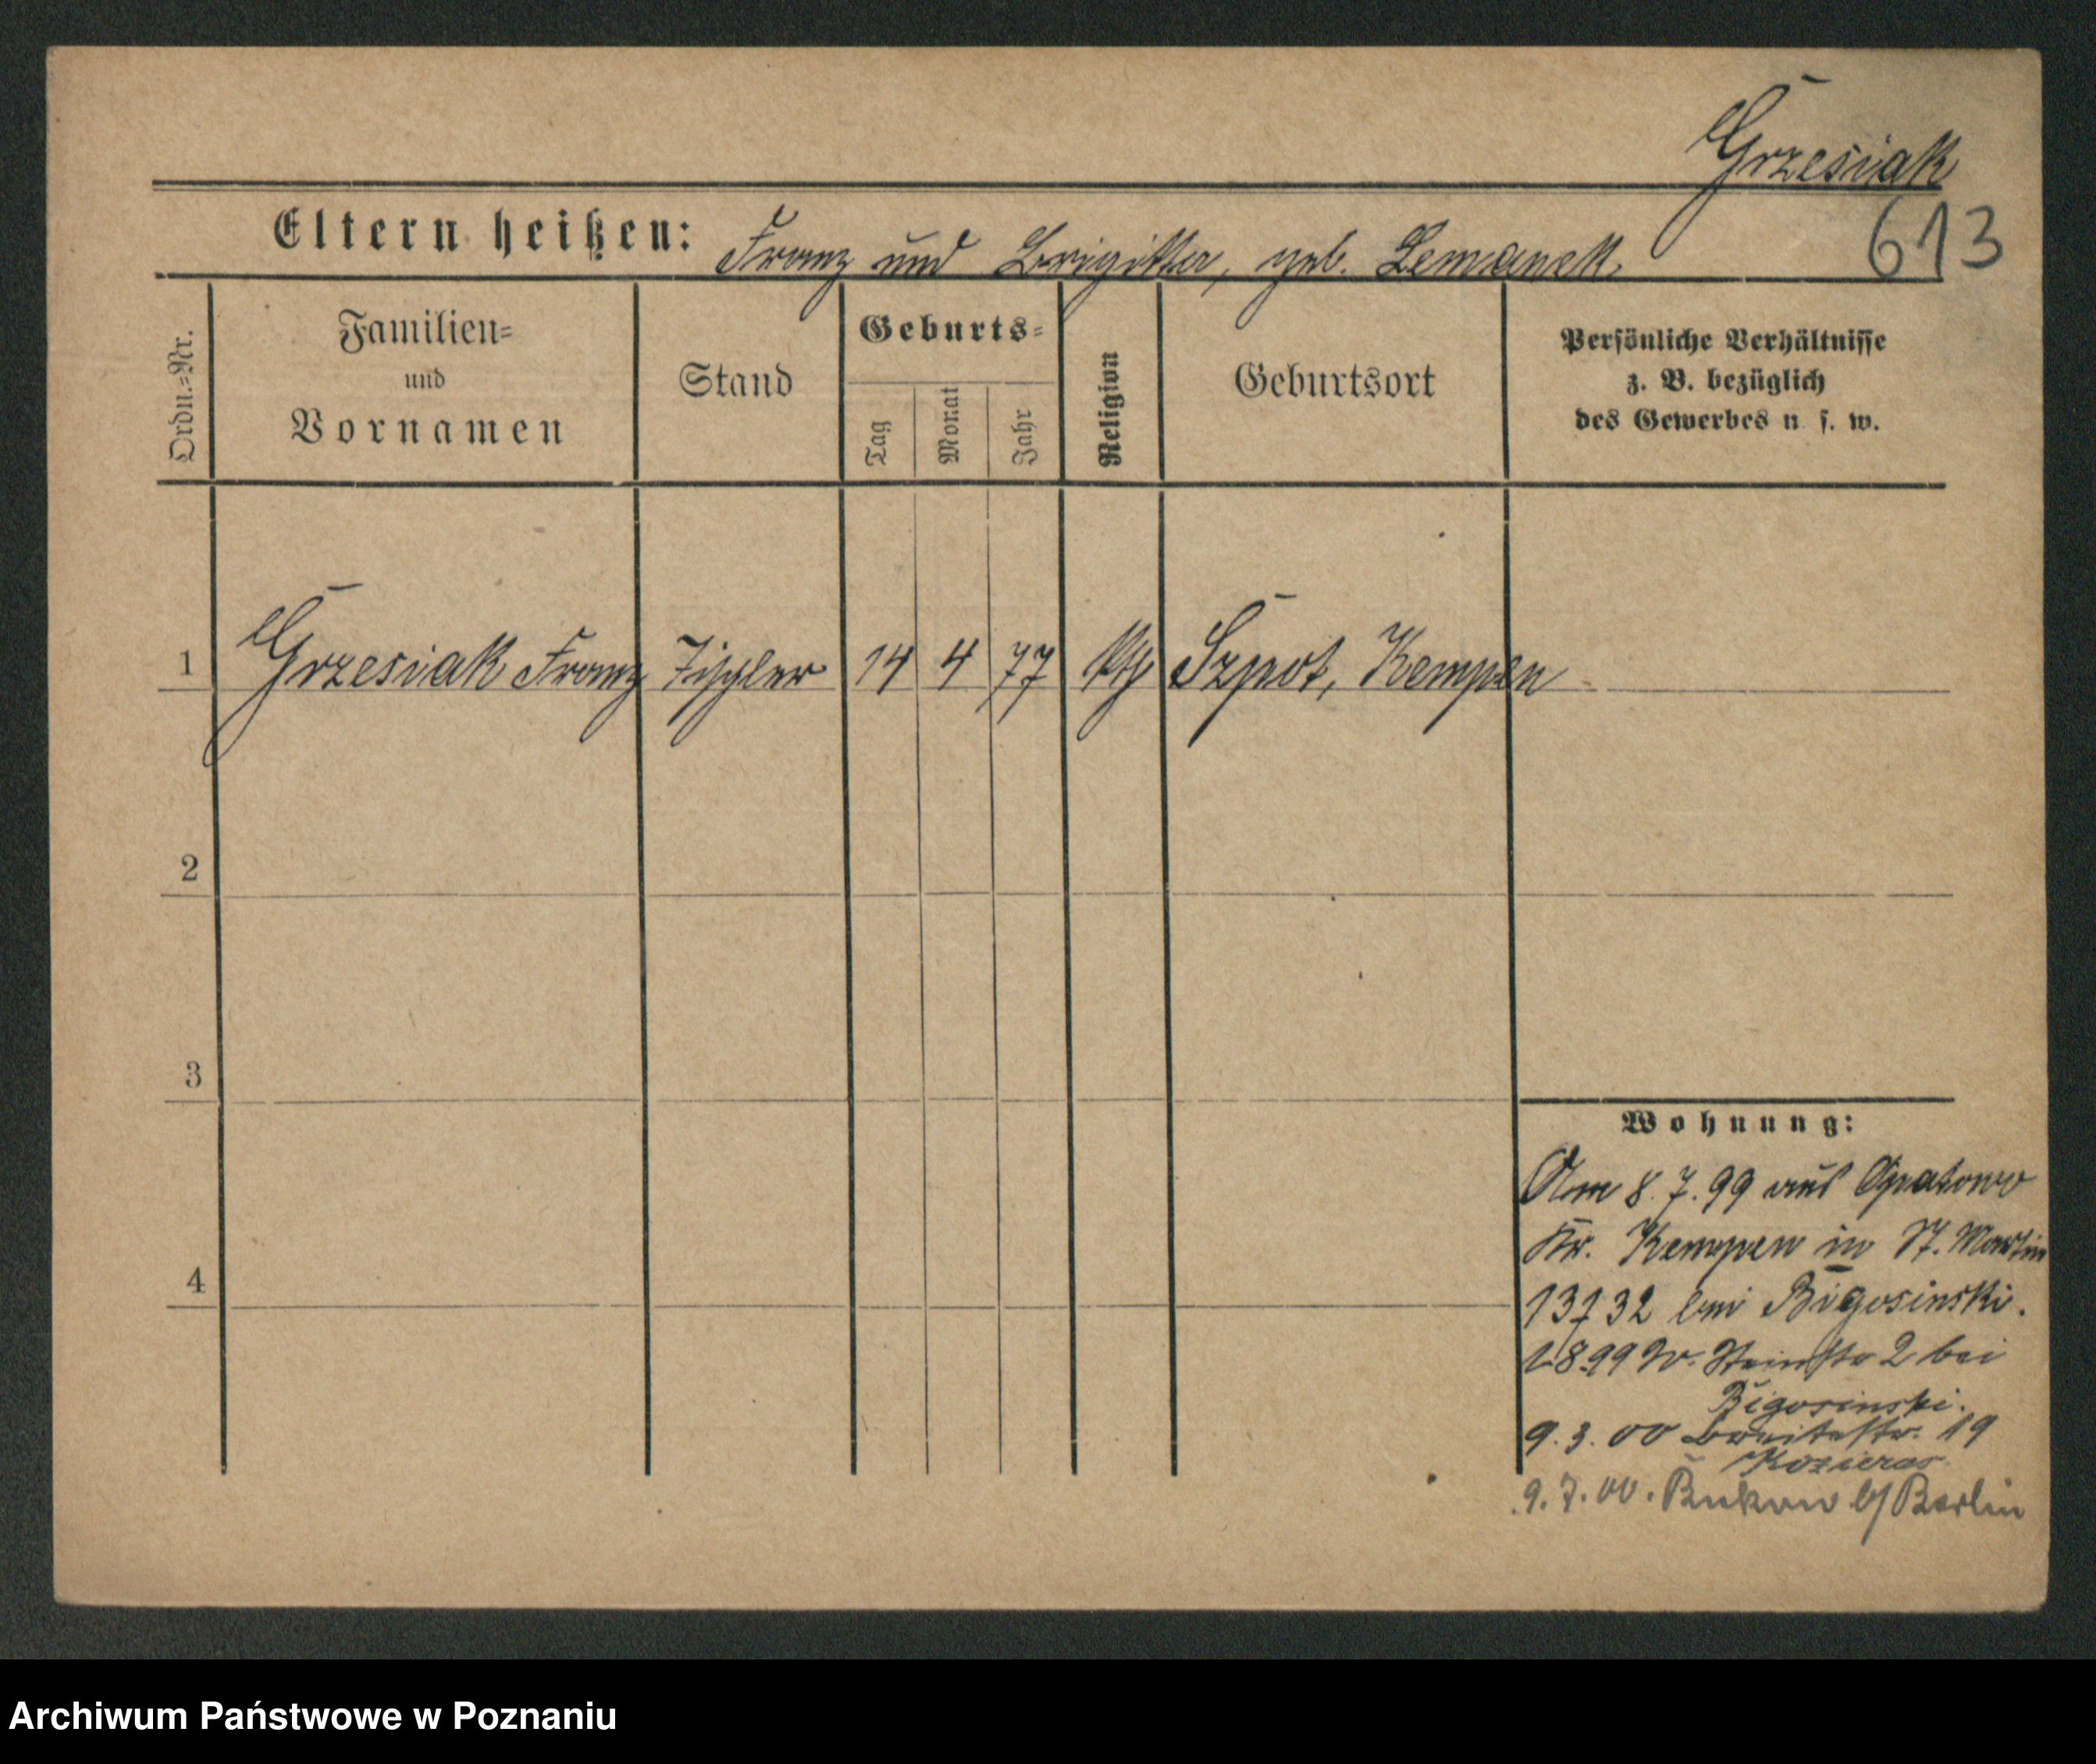 Grzesiak
613
Eltern heißen: Franz und Brigitta, geb. Lemanek.
Ordn.=Nr.
Familien=
und
Vornamen
Stand
Geburts=
Tag
Monat
Jahr
Religion
Geburtsort
Persönliche Verhältnisse
z. B. bezüglich
des Gewerbes u. s. w.
1 Grzesiak Franz Tischler 14 4 77 kth Szpot, Kempen
2
3
4
Wohnung:
Am 8. 7. 99 aus Opatowo
Kr. Kempen in St. Martin
bei Bigosinski.
1.8.99 W. Steinstr 2 bei
Bigosinski.
9. 3. 00 Breitestr. 19
9. 7. 00. b/ Berlin
Archiwum Państwowe w Poznaniu